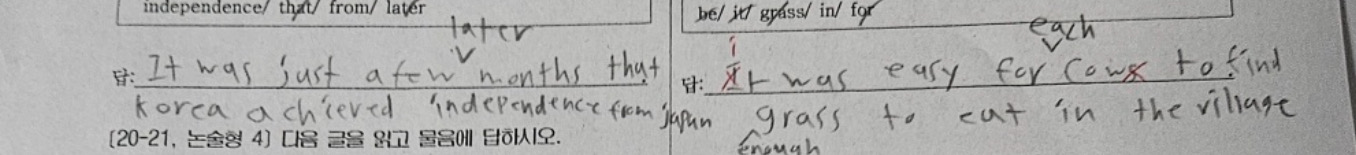 independence/ that/ from/ later
later
답: It was just a few months that
Korea achieved independence from japan
[20-21, 논술형 4] 다음 글을 읽고 물음에 답하시오.
be/ it/ grass/ in/ for
each
i
답: It was easy for cows to find
grass to eat in the village
enough